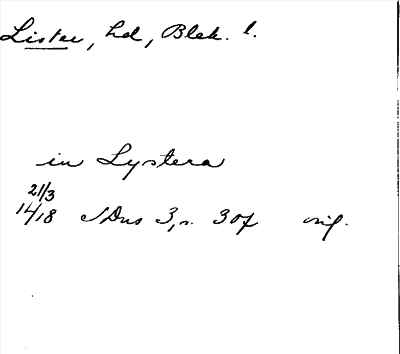 Lister, hd, Blek. l.
in Lystera
21/3
1418 SDns 3, s. 30f orig.